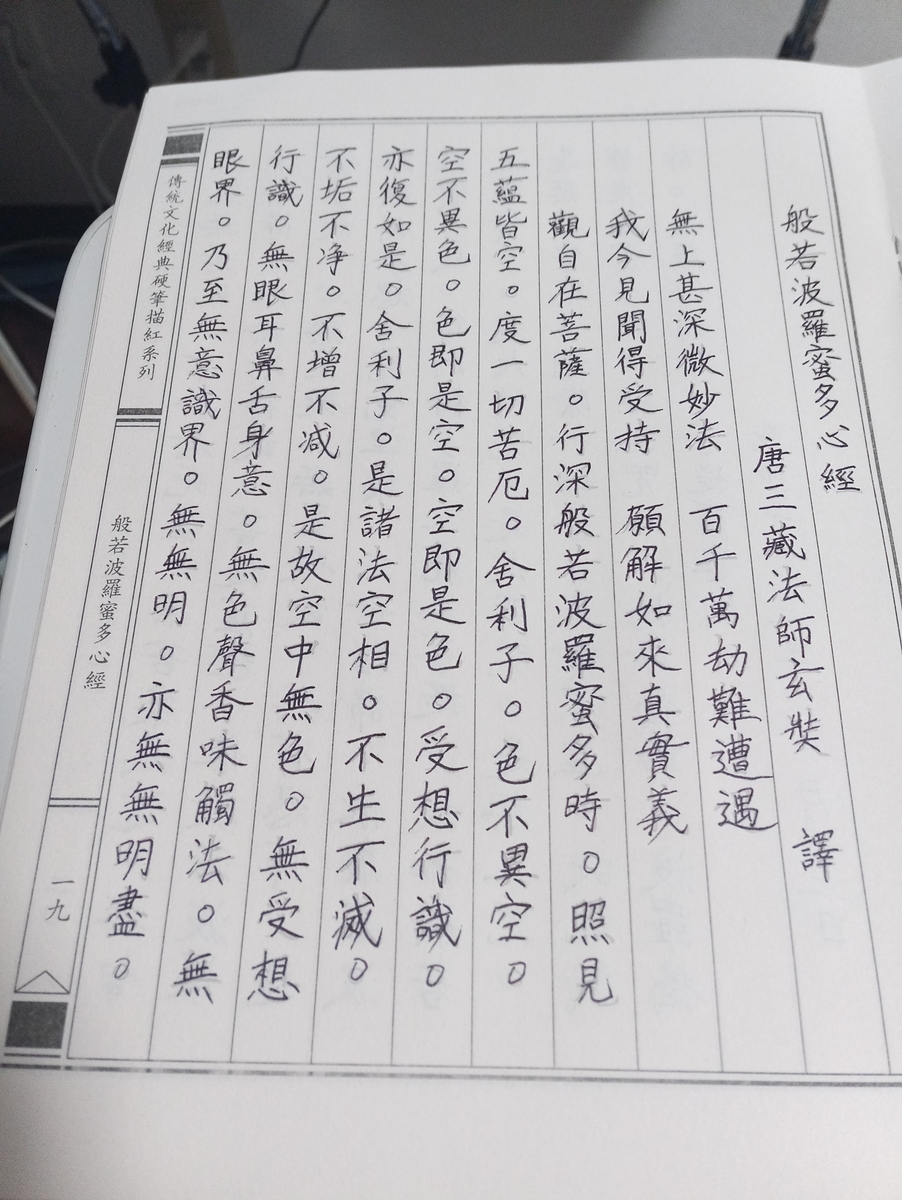 般若波羅蜜多心經
唐三藏法師玄奘　譯
無上甚深微妙法　百千萬劫難遭遇
我今見聞得受持　願解如來真實義
觀自在菩薩。行深般若波羅蜜多時。照見
五蘊皆空。度一切苦厄。舍利子。色不異空。
空不異色。色即是空。空即是色。受想行識。
亦復如是。舍利子。是諸法空相。不生不滅。
不垢不净。不增不减。是故空中無色。無受想
行識。無眼耳鼻舌身意。無色聲香味觸法。無
眼界。乃至無意識界。無無明。亦無無明盡。
傳統文化經典硬筆描紅系列
般若波羅蜜多心經
一九